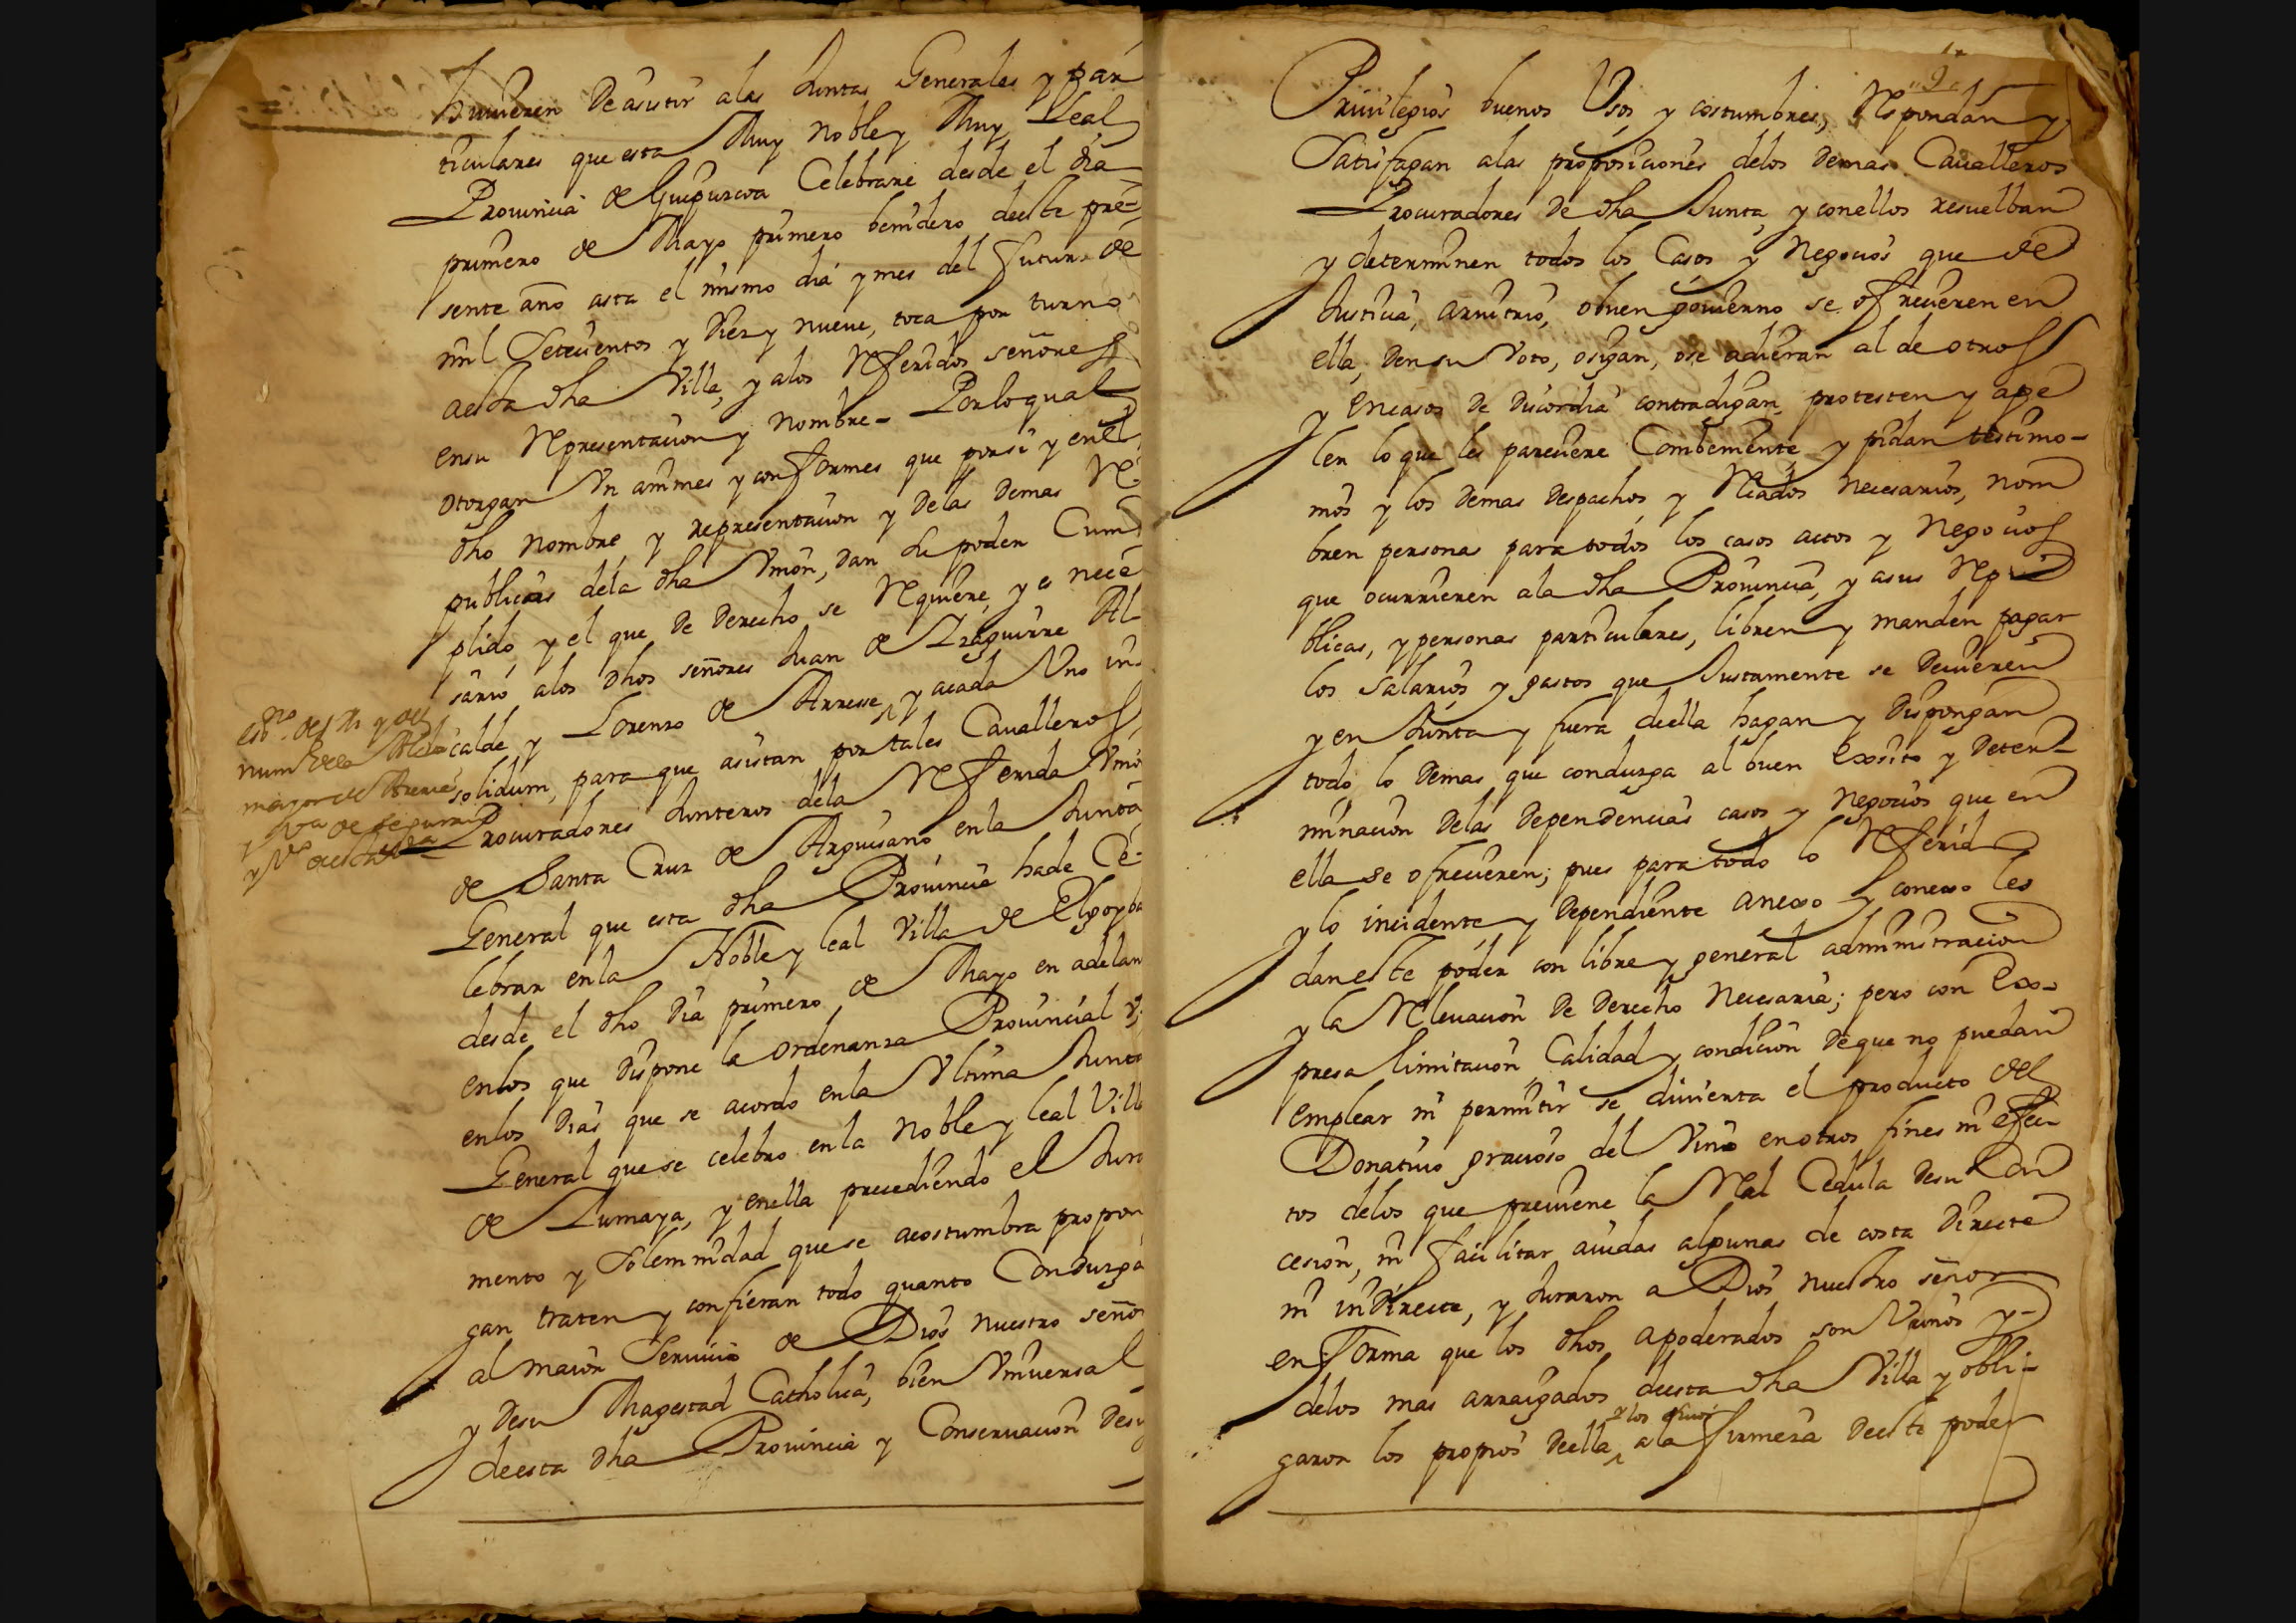 huuieren de asistir alas Juntas Generales y par
ticulares que esta Muy Noble y Muy Leal
Prouinçia de Guipuzcoa Celebrare desde el dia
primero de Mayo primero benidero deeste pre-
sente año asta el mismo dia y mes del futuro de
mil Setecientos y Diez y nueue, toca por turno
aesta dha Villa, y alos Referidos señores
ensu Representacion y nombre - Porloqual
otorgan Vn animes y conformes que porsi y enel
dho nombre, y representacion y delas demas Re
publicas dela dha Vnion, dan su poder Cum
plido, y el que de derecho se Requiere, y es nece
sario alos dhos señores Juan de Yraguirre Al
calde y Lorenzo de Arrese, y acada Vno in
solidum, para que asistan por tales Caualleros
Procuradores Junteros dela Referida Vnio
de Santa Cruz de Arguisano enla Junta
General que esta dha Prouincia hade Ce-
lebrar enla Noble y leal Villa de Elgoyba
desde el dho dia primero de Mayo en adelan
enlos que dispone la ordenanza Prouincial y
enlos dias que se acordo enla Vltima Junta
General quese celebro enla noble y leal Vill
de Zumaya, y enella precediendo el Jura
mento y Solemnidad quese acostumbra propon
gan traten y confieran todo quanto Conduzga
al maior Seruicio de Dios nuestro señor
y desu Magestad Catholica, bien Vniuersal
deesta dha Prouincia y Conseruacion desu
esno. de su M. y del
num. dela Alcal
maior de Arería
Priuilegios buenos Vsos y costumbres, Respondan y
Satisfagan alas proposiciones delos demas Caualleros
Procuradores de dha Junta, y conellos resuelban
y determinen todos los Casos y Negocios que de
Justicia, aruitrio, obuen gouierno se ofrecieren en
ella, den su Voto, osigan, ose adieran al de otros
y encasos de discordia contradigan, protesten y ape
len lo que les pareciere Combeniente y pidan testimo-
nios y los demas despachos, y Recados necesarios, nom
bren personas para todos los casos actos y Negocios
que ocurrieren ala dha Prouincia, y asus Repu
blicas, y personas particulares, libren y manden pagar
los Salarios y gastos que Justamente se deuieren
y en Junta y fuera deella hagan y dispongan
todo lo demas que conduzga al buen Exosito y deter-
minacion delas dependencias casos y negocios que en
ella se ofrecieren; pues para todo lo Referid
y lo incidente y dependiente anexo y conexo les
dan este poder con libre y general administracion
y la Releuacion de derecho Necesaria; pero con Ex-
presa limitacion Calidad y condicion deque no puedan
emplear ni permitir se diuierta el producto del
Donatiuo gracioso del Vino enotros fines ni efec
tos delos que preuiene la Real Cedula desu Con
cesion, ni facilitar aiudas algunas de costa directe
ni indirecte, y Juraron a Dios nuestro señor
en forma que los dhos apoderados son Vecinos y-
delos mas arraigados deesta dha Villa y obli-
garon los propios deella, ala firmeza deeste poder